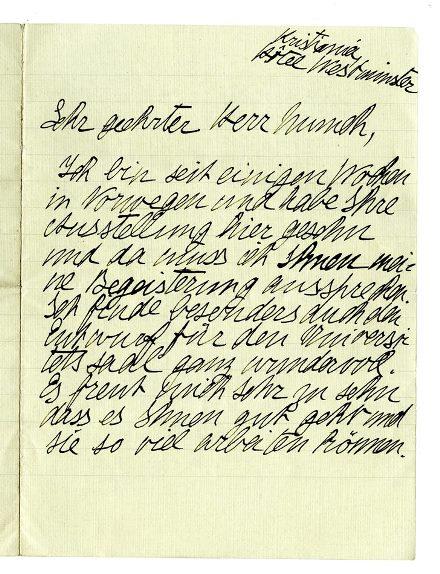 Kristiania
Hôtel Westminster
Sehr geehrter Herr Munch,
Ich bin seit einigen Wochen
in Norwegen und habe Ihre
Ausstellung hier gesehn
und da muss ich Ihnen mei-
ne Begeisterung aussprechen.
Ich finde besonders auch den
Entwurf für den Universi
tätssaal ganz wundervoll.
Es freut mich sehr zu sehn
dass es Ihnen gut geht und
sie so viel arbeiten können.